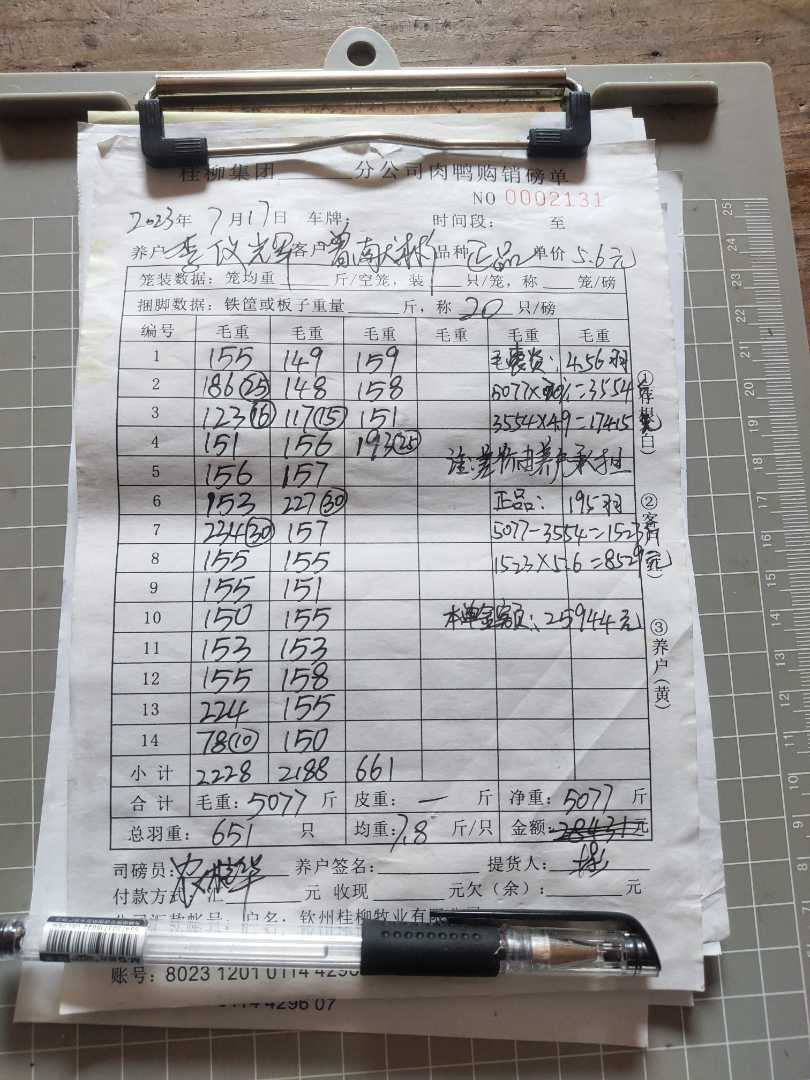 桂柳集团______分公司肉鸭购销磅单
NO 0002131
2023年 7月17日 车牌: 时间段: 至
养户 李仪 客户 曾 品种 正品 单价 5.6元
笼装数据: 笼均重______斤/空笼, 装______只/笼, 称______笼/磅
捆脚数据: 铁筐或板子重量______斤, 称 20 只/磅
编号 毛重 毛重 毛重 毛重 毛重 毛重
1 155 149 159 毛 : 456羽
2 186(25) 148 158 5077×70%=3554
3 123(16) 117(15) 151 3554×4.9=17415元
4 151 156 193(25) 注:差价由养户承担
5 156 157
6 153 227(30) 正品: 195羽
7 234(30) 157 5077-3554=1523斤
8 155 155 1523×5.6=8529元
9 155 151
10 150 155 本单金额: 25944元
11 153 153
12 155 158
13 224 155
14 78(10) 150
小计 2228 2188 661
合计 毛重: 5077 斤 皮重: — 斤 净重: 5077 斤
总羽重: 651 只 均重: 7.8 斤/只 金额: 28431元
司磅员: 养户签名: 提货人:
付款方式: 汇______元 收现______元欠(余):______元
户名: 钦州桂柳牧业有限
账号: 8023 1201 0114 4296
0114 4296 07
①存根(白)
②客户(红)
③养户(黄)
25
24
23
22
21
20
19
18
17
16
15
14
13
12
11
10